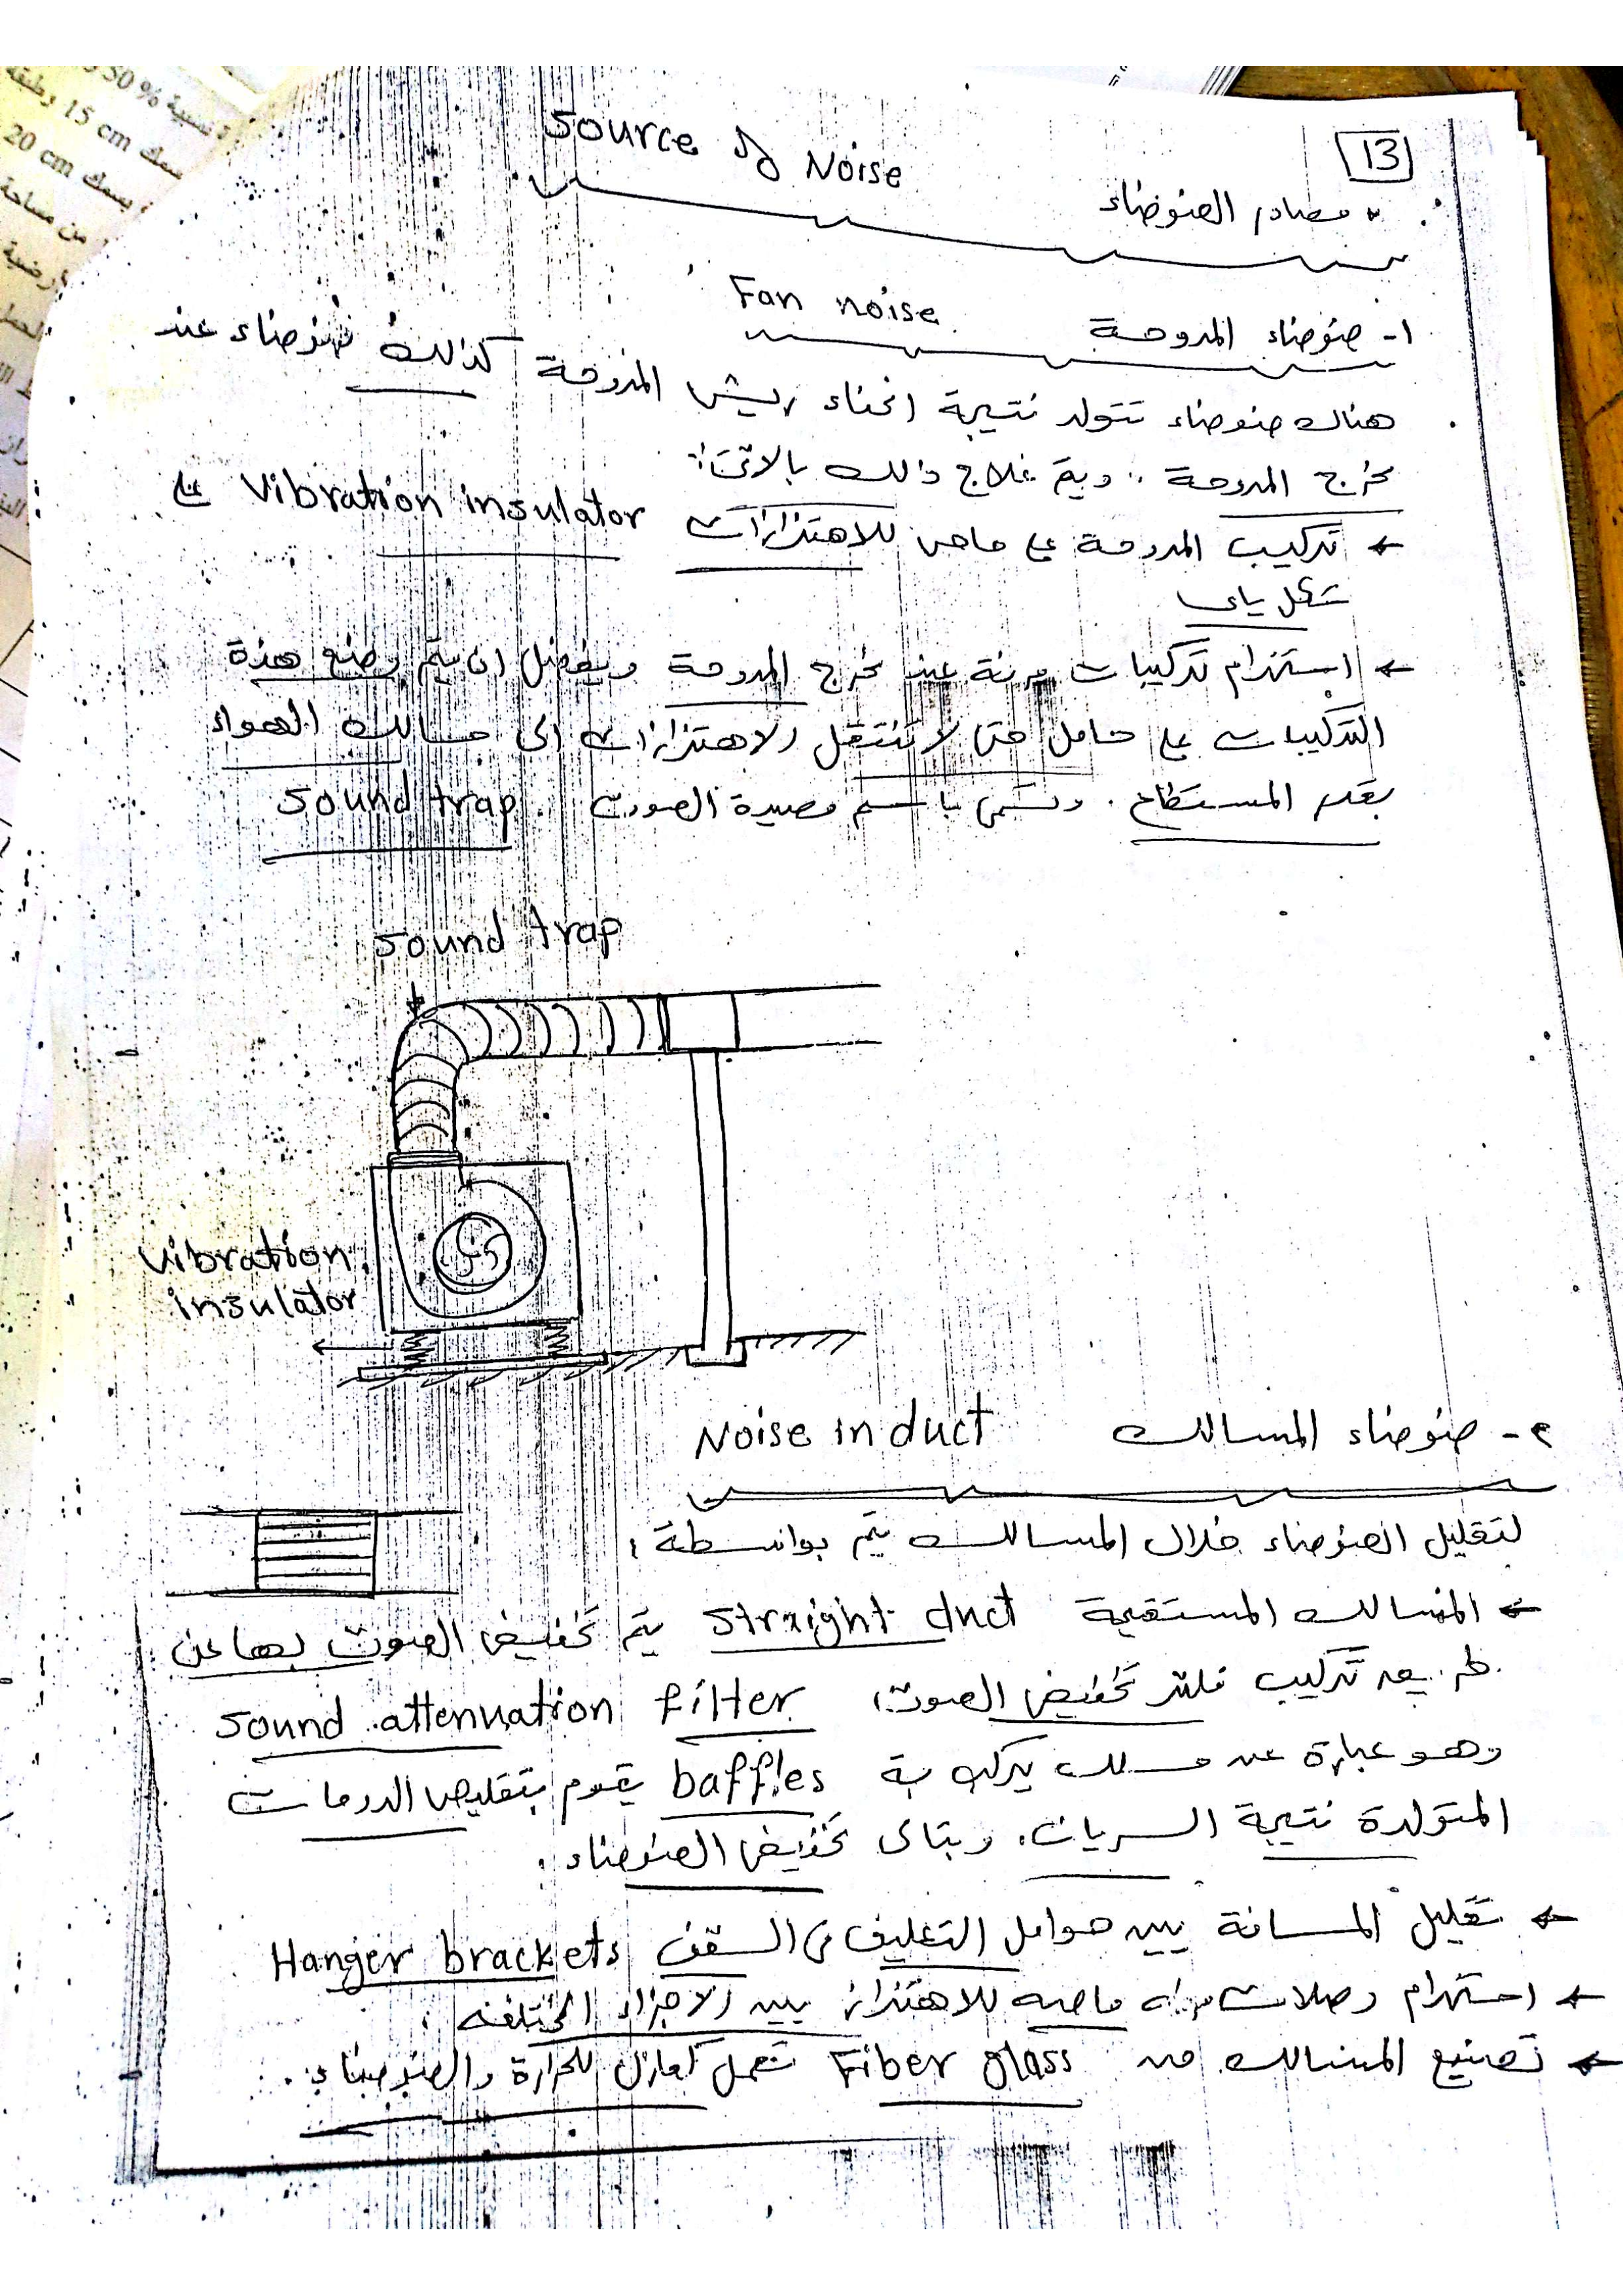 13
Source of Noise
مصادر الضوضاء
Fan noise
١- ضوضاء المروحة
هناك ضوضاء تتولد نتيجة انحناء ريش المروحة كذلك ضوضاء عند
مخرج المروحة .. ويتم علاج ذالك بالاتى:
← تركيب المروحة على ماص للاهتزازات Vibration insulator على
شكل ياى
← استخدام تركيبات مرنة عند مخرج المروحة ويفضل ان يتم وضع هذة
التركيبات على حامل حتى لا تنتقل الاهتزازات الى مسالك الهواء
بقدر المستطاع . وتسمى باسم مصيدة الصوت . Sound trap
Sound trap
Vibration
insulator
٢- ضوضاء المسالك Noise in duct
لتقليل الضوضاء خلال المسالك يتم بواسطة :
← المسالك المستقيمة Straight duct يتم تخفيض الصوت بها عن
طريق تركيب فلتر تخفيض الصوت Sound attenuation filter
وهو عبارة عن مسلك يركب بة baffles يقوم بتقليص الدومات
المتولدة نتيجة السريان. وبتالى تخفيض الضوضاء .
← تقليل المسافة بين حوامل التعليق فى السقف Hanger brackets
← استخدام وصلات مرنه ماصه للاهتزاز بين الاجزاء المختلفه .
← تصنيع المسالك من Fiber glass تعمل كعازل للحرارة والضوضاء .
نسبية 50 %
سمك 15 cm وطبقة
بسمك 20 cm
من مساحة